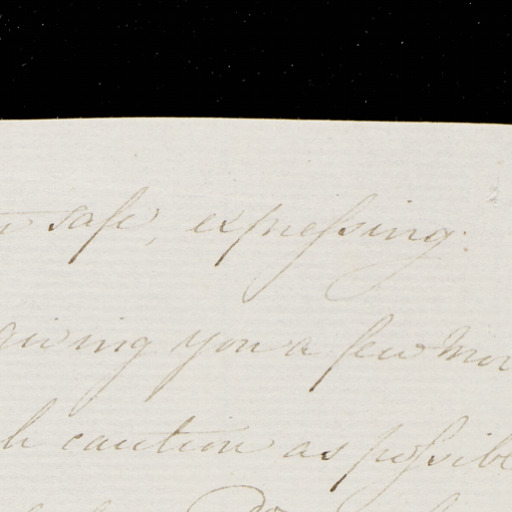 safe, expreſsing.
giving you a few mor
h caution as poſsible